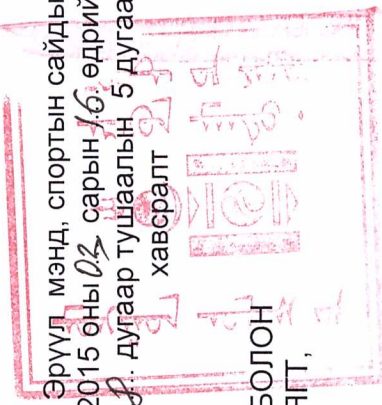 Эрүүл мэнд, спортын сайды
2015 оны 02 сарын 16 өдрий
дугаар тушаалын 5 дугаа
хавсралт
БОЛОН
ЯГТ,